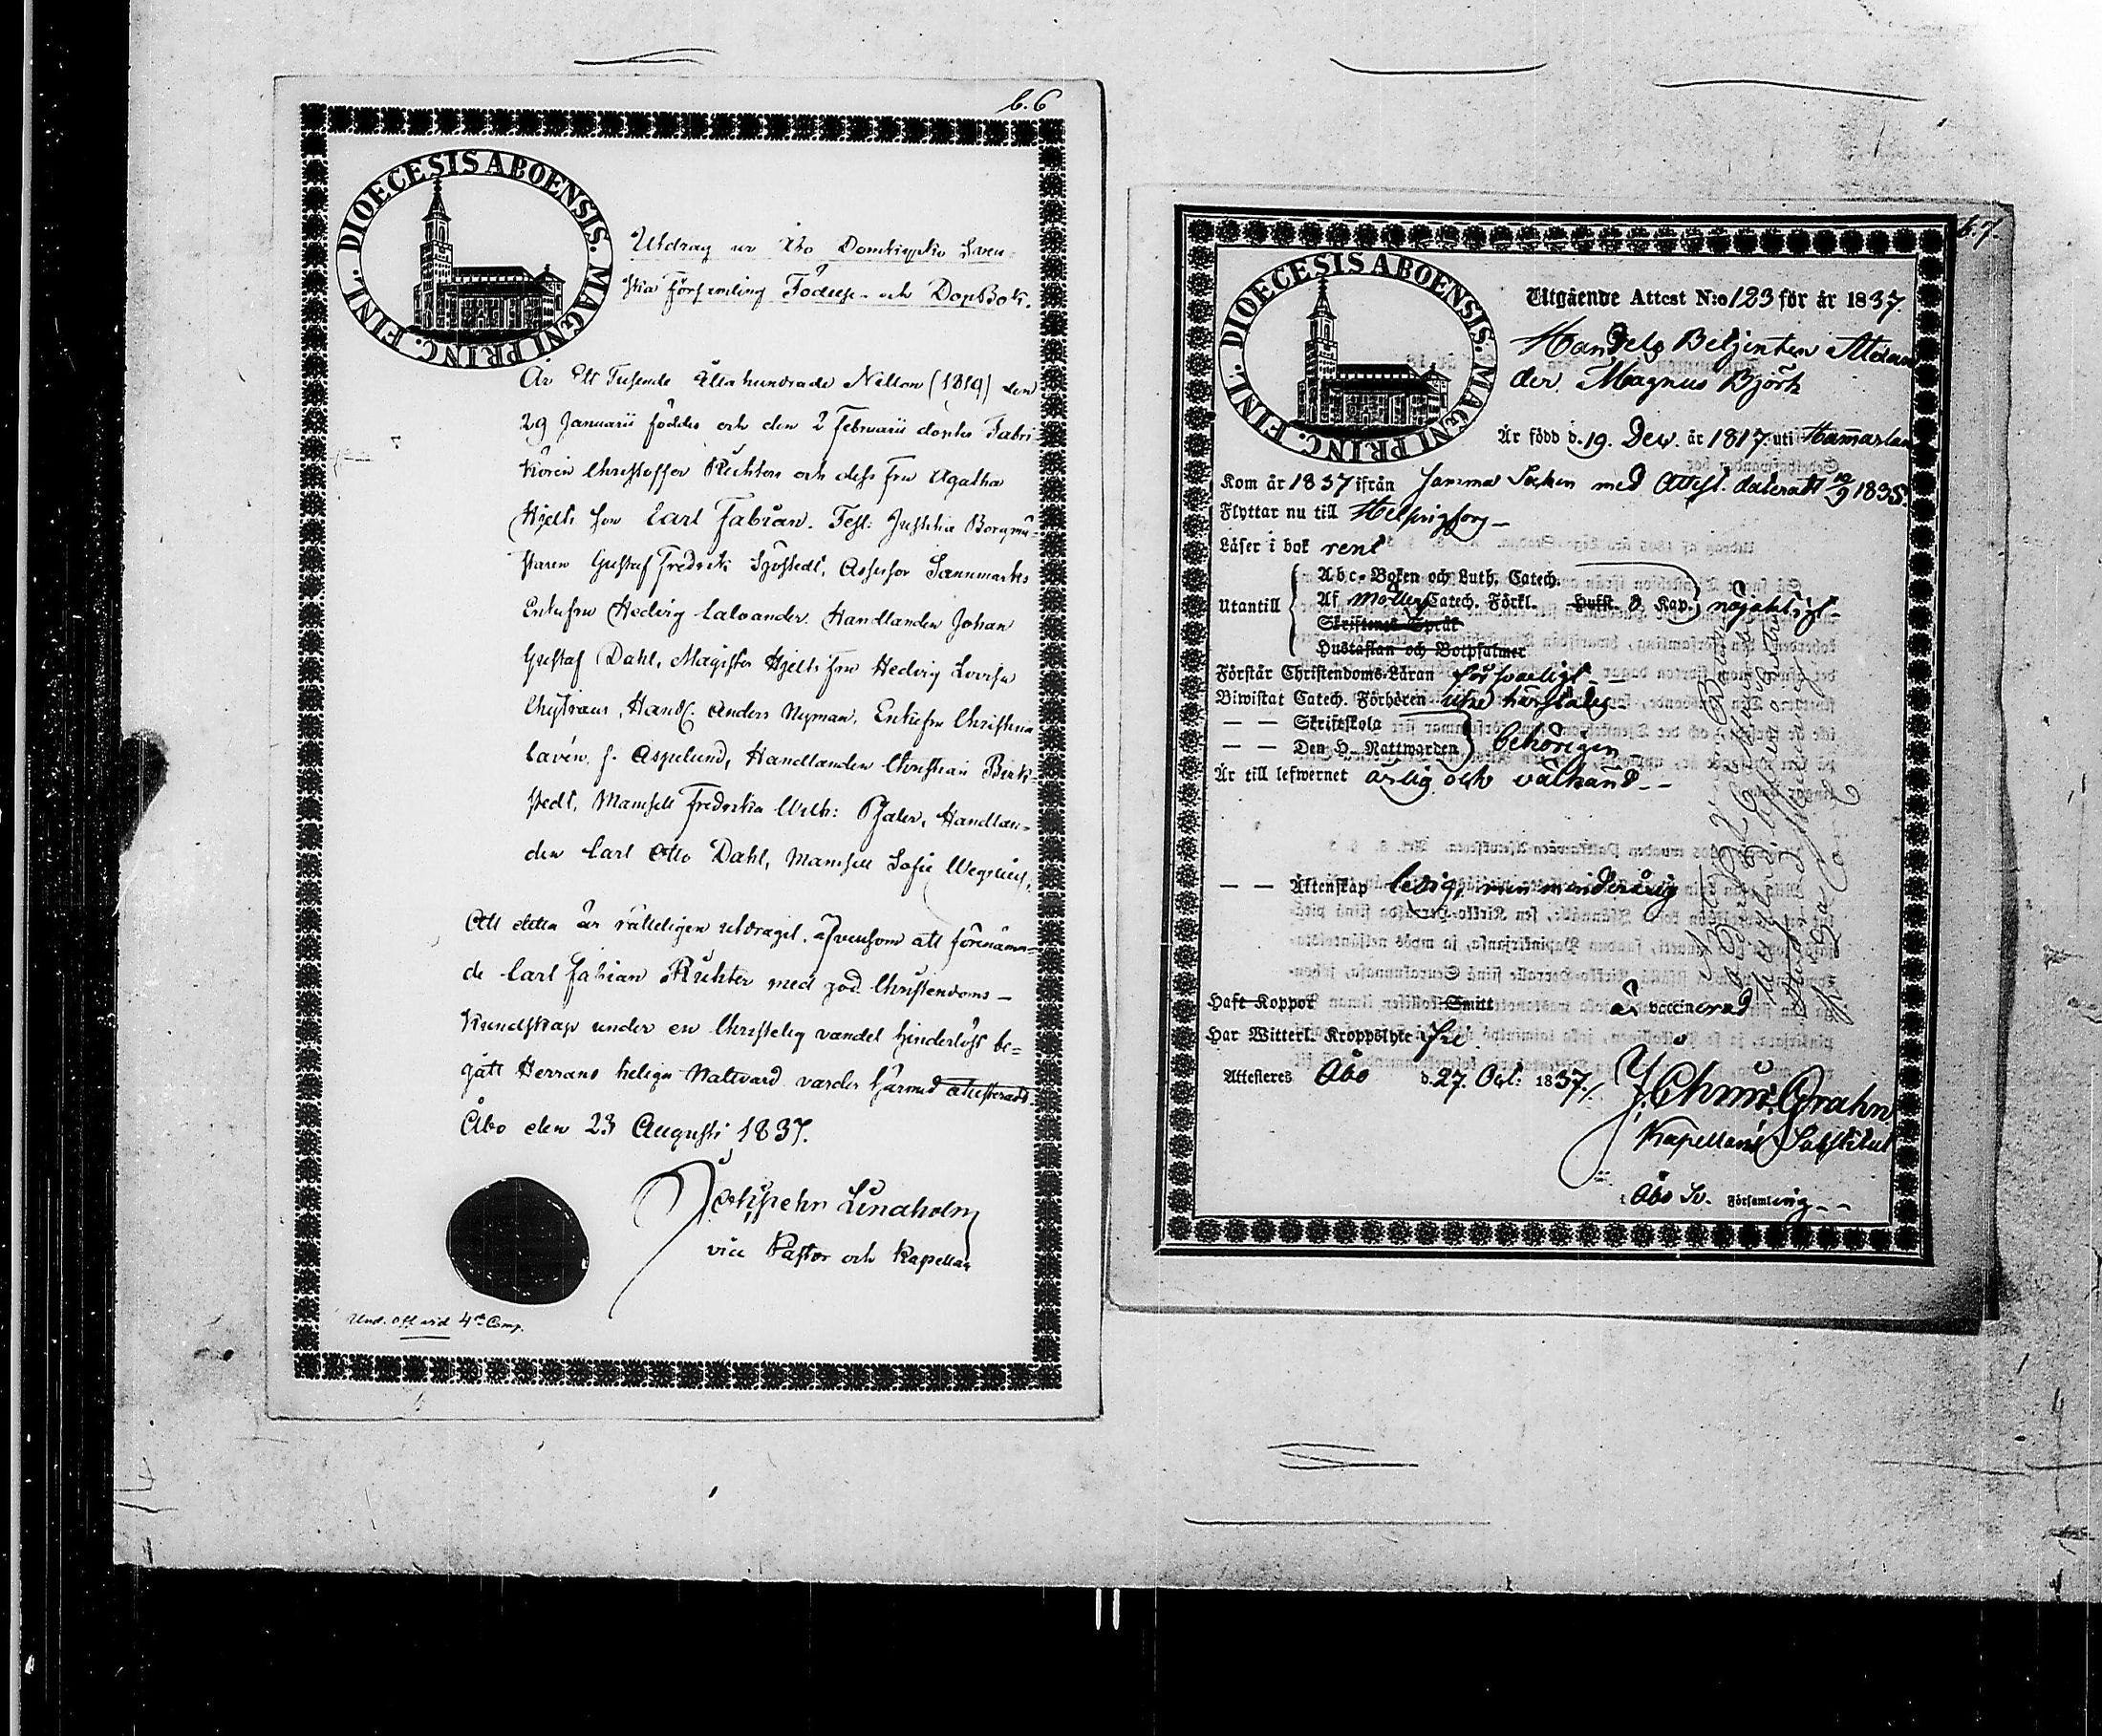 b.6
DIOECESIS ABOENSIS. MAGNI PRINC. FINL.
Utdrag ur Åbo Domkyrko Sven-
ska Församling Födelse- och DopBok.
År Ett Tusende Åttahundrade Nitton (1819) den
29 Januarii föddes och den 2 Februarii döptes Fabri-
kören Christoffer Richters och dess fru Agatha
Hjelts son Carl Fabian. Test: Justitiæ Borgmä-
staren Gustaf Fredrik Sjöstedt, Assessor Sannmarks
Enkefru Hedvig Calvander, Handlanden Johan
Gustaf Dahl, Magister Hjelts fru Hedvig Lovisa
Chytraeus, Handl. Anders Nyman, Enkefru Christina
Cavén f. Aspelund, Handlanden Christian Birk-
stedt, Mamsell Fredrika Wilh: Pfaler, Handlan-
den Carl Otto Dahl, Mamsell Sofie Wegelius,
Att detta är rätteligen utdraget, äfvensom att förenämn-
de Carl Fabian Richter med god Christendoms-
kundskap under en Christelig vandel hinderlöst be-
gått Herrans heliga Nattvard varder härmed attesteradt.
Åbo den 23 Augusti 1837.
Lindholm
vice Pastor och Kapellan
Und. off. vid 4de Comp.
b.7.
DIOECESIS ABOENSIS. MAGNI PRINC. FINL.
Utgående Attest N:o 123 för år 1837.
Handels Betjenten Alexan
der Magnus Björk
Är född d. 19. Dec. år 1817. uti Hammarland
Kom år 1837 ifrån samma Socken med Attest. dateradt 10/9 1835.
Flyttar nu till Helsingfors
Läser i bok rent
Utantill
Abc-Boken och Luth. Catech.
Af Möllers Catech. Förkl. Hufst. 8 Kap. nöjaktigt
Skriftenes Språk
Hustaflan och Botpsalmer
Förstår Christendoms-Läran försvarligt
Biwistat Catech. Förhören utse härstädes
— — Skriftskola
— — Den H. Nattwarden behörigen
Är till lefwernet ärlig och välkänd
— — Äktenskap ledig, men minderårig
Haft Koppor Smitt är vaccinerad
Har Witterl. Kroppslyte fri
Attesteras Åbo d. 27. Oct: 1837.
J. Chr: Grahn
Kapellans Substitut
i Åbo Sv. Församling